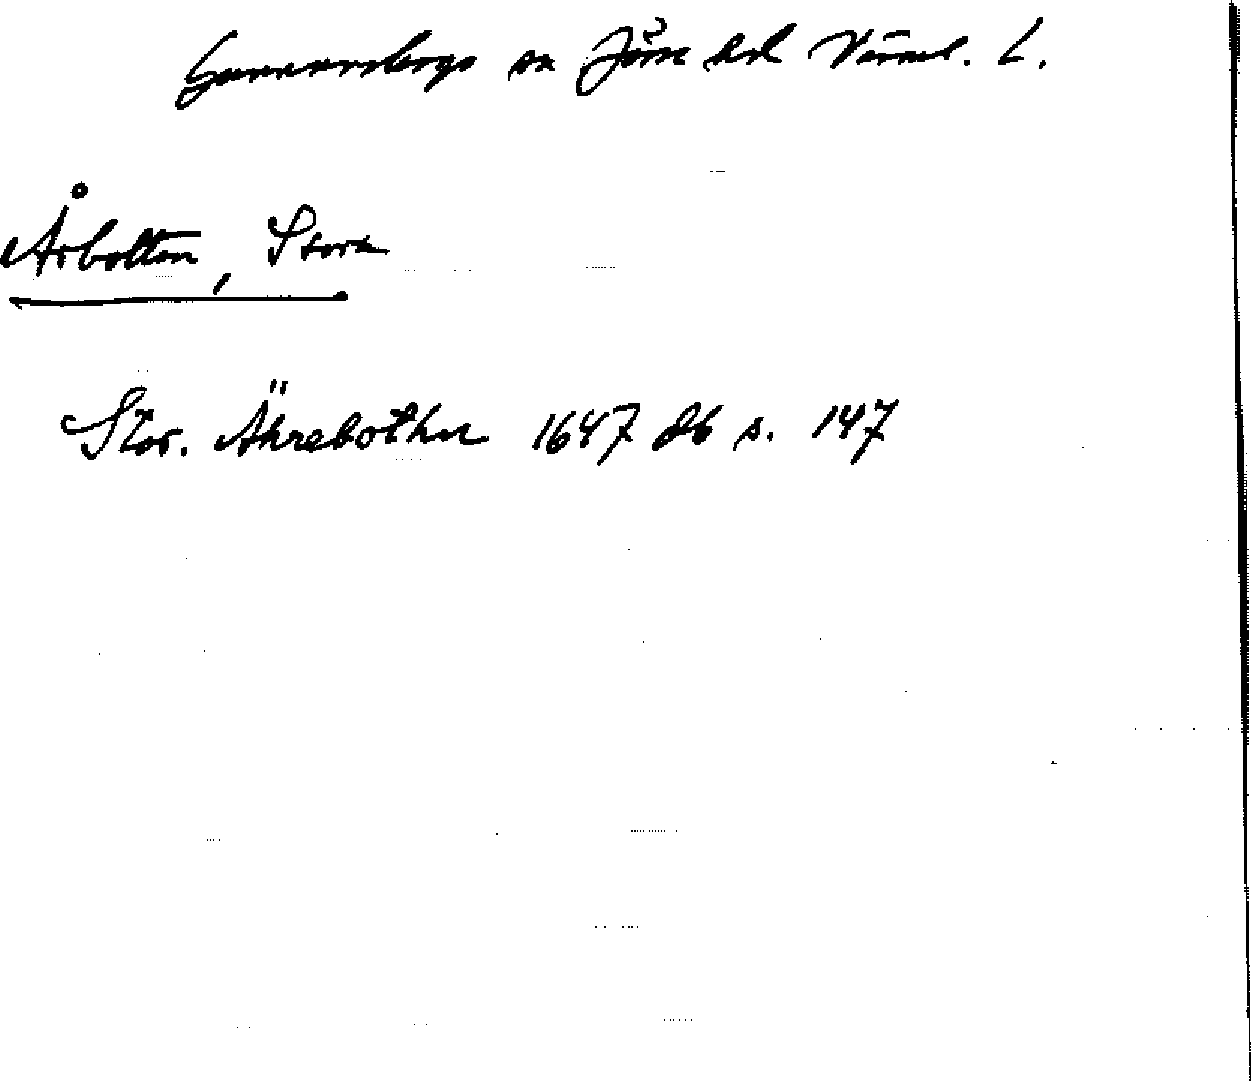 Gunnarskogs sn Jösse hd Värml. L.
Årbotten, Stora
Stor. Ährebothn 1647 db s. 147